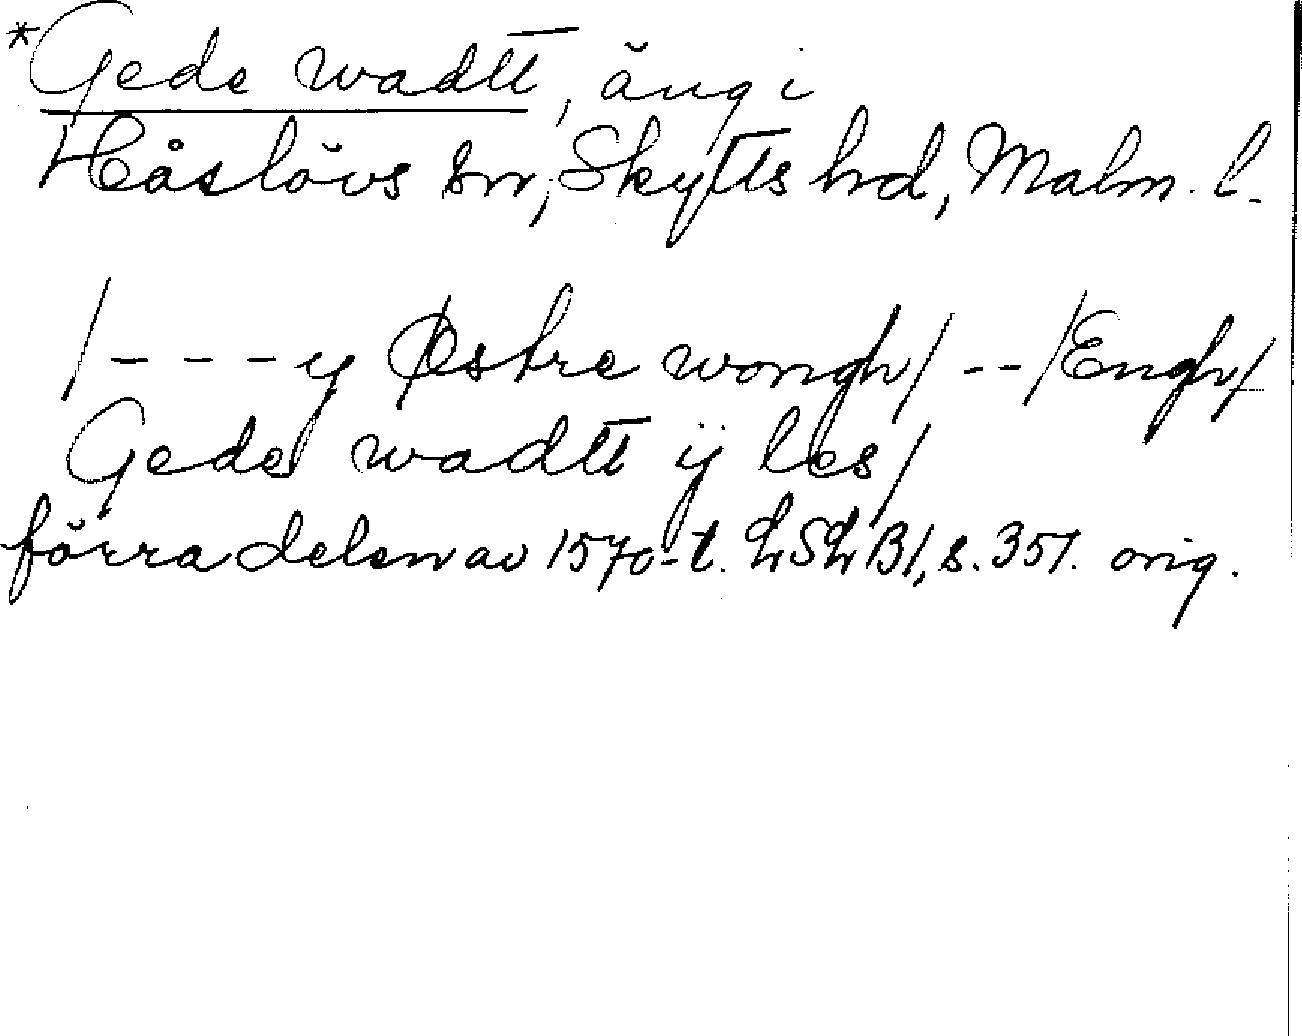 *Gede wadtt, äng i
Håslövs sn, Skytts hd, Malm. l.
/- - - y Østre wongh/ -- /Engh/
Gede wadtt ij les/
förra delen av 1570-t. LSLB1, s. 351. orig.